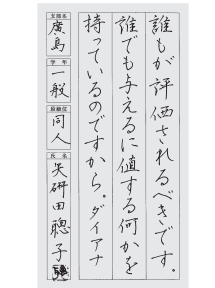 誰もが評価されるべきです。
誰でも与えるに値する何かを
持っているのですから。ダイアナ
支部名
廣島
学年
一般
段級位
同人
氏名
矢研田聰子